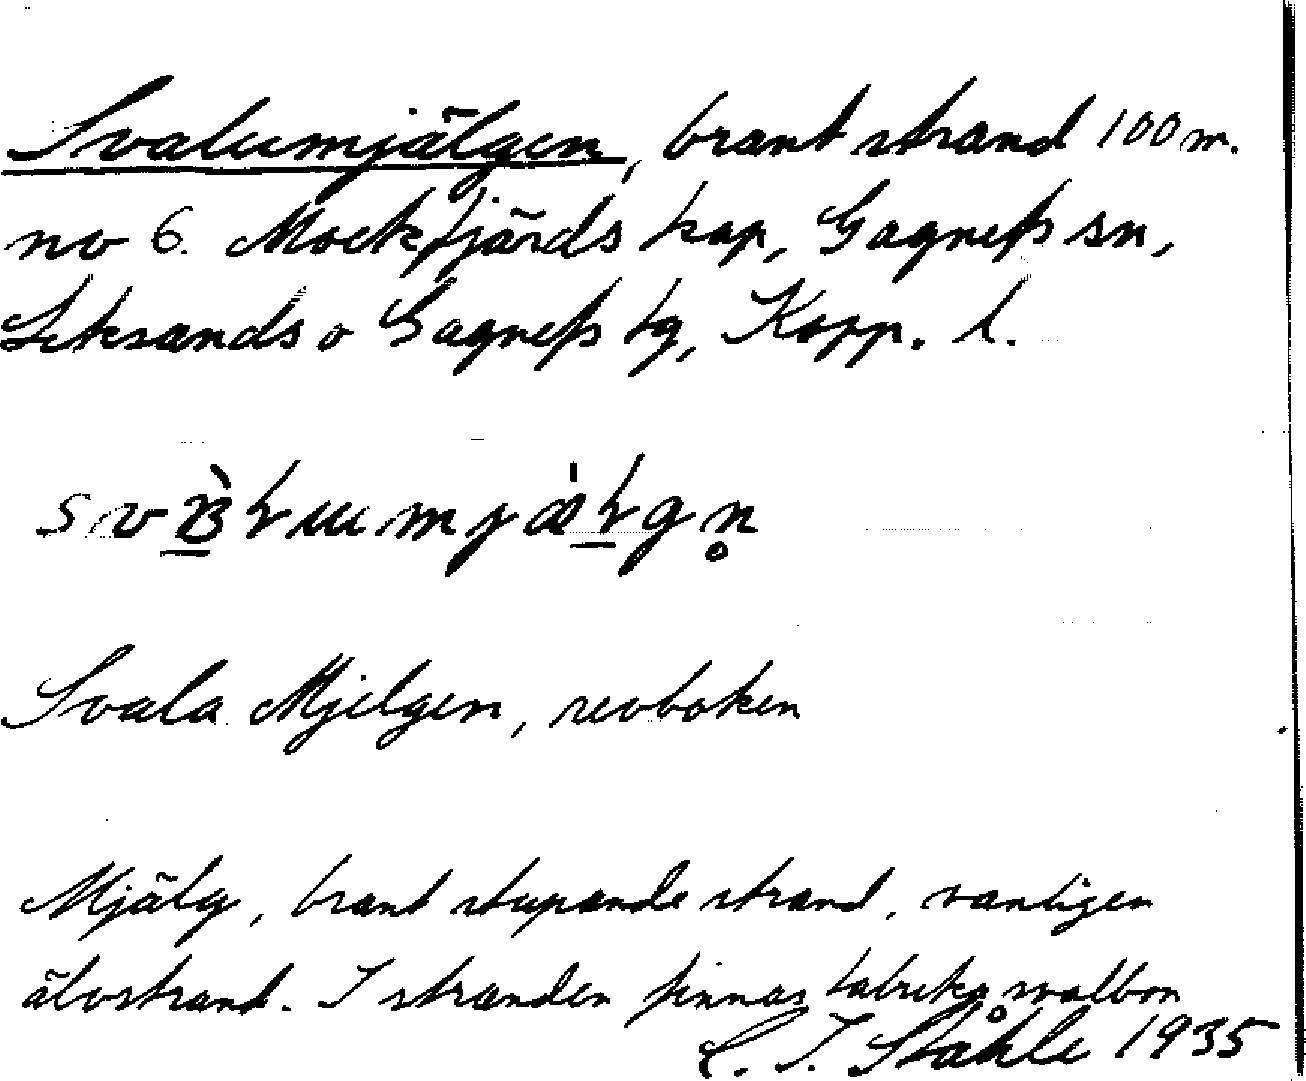 Svalumjälgen, brant strand 100 m.
no 6. Mockfjärds kap, Gagnefs sn,
Leksands o Gagnefs tg, Kopp. l.
Svala Mjelgen, revboken
Mjälg, brant stupande strand, vanligen
älvstrand. I stranden finnas talrika svalbon
C. I. Ståhle 1935